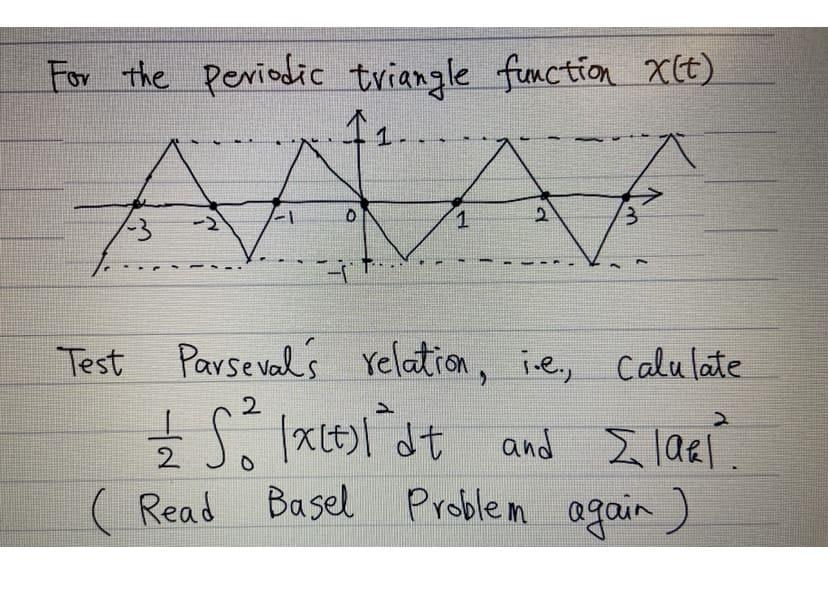 For the periodic triangle function x(t)
1
-3 -2 -1 0 1 2 3
-1
Test Parseval's relation, i.e., Calulate
1/2 ∫₀² |x(t)|² dt and Σ |aₖ|².
( Read Basel Problem again )